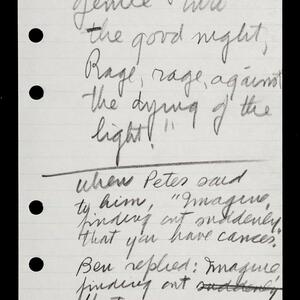 gentle into
the good night,
Rage, rage, against
the dying of the
light!"
when Peter said
to him, "Imagine,
finding out suddenly
that you have cancer."
Ben replied: Imagine,
finding out suddenly